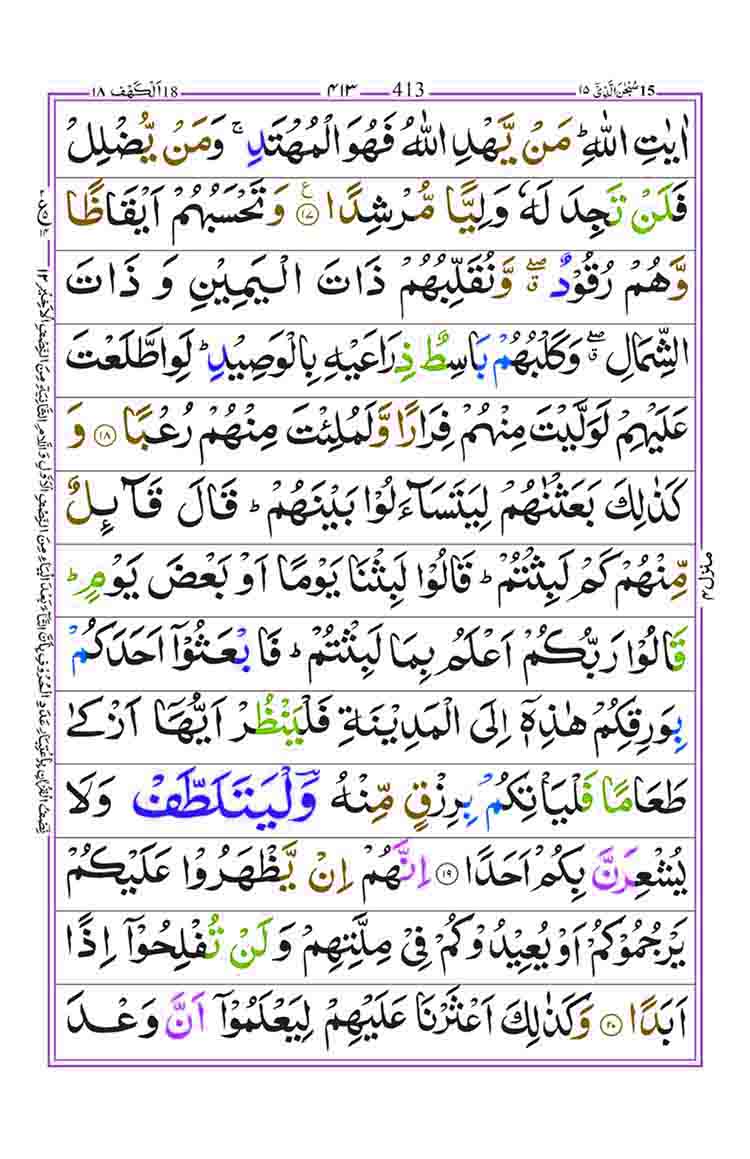 15 سُبْحٰنَ الَّذِیْۤ ۱۵
413 ۴۱۳
18 اَلْكَهْف ۱۸
اٰیٰتِ اللّٰهِ ؕ مَنْ یَّهْدِ اللّٰهُ فَهُوَ الْمُهْتَدِ ۚ وَمَنْ یُّضْلِلْ
فَلَنْ تَجِدَ لَهٗ وَلِیًّا مُّرْشِدًا ۟ ع ۱۷ وَتَحْسَبُهُمْ اَیْقَاظًا
وَّهُمْ رُقُوْدٌ ۖۗ وَّنُقَلِّبُهُمْ ذَاتَ الْیَمِیْنِ وَ ذَاتَ
الشِّمَالِ ۖۗ وَكَلْبُهُمْ بَاسِطٌ ذِرَاعَیْهِ بِالْوَصِیْدِ ؕ لَوِ اطَّلَعْتَ
عَلَیْهِمْ لَوَلَّیْتَ مِنْهُمْ فِرَارًا وَّلَمُلِئْتَ مِنْهُمْ رُعْبًا ۱۸ وَ
كَذٰلِكَ بَعَثْنٰهُمْ لِیَتَسَآءَلُوْا بَیْنَهُمْ ؕ قَالَ قَآئِلٌ
مِّنْهُمْ كَمْ لَبِثْتُمْ ؕ قَالُوْا لَبِثْنَا یَوْمًا اَوْ بَعْضَ یَوْمٍ ؕ
قَالُوْا رَبُّكُمْ اَعْلَمُ بِمَا لَبِثْتُمْ ؕ فَابْعَثُوْۤا اَحَدَكُمْ
بِوَرِقِكُمْ هٰذِهٖۤ اِلَی الْمَدِیْنَةِ فَلْیَنْظُرْ اَیُّهَاۤ اَزْكٰی
طَعَامًا فَلْیَاْتِكُمْ بِرِزْقٍ مِّنْهُ وَلْیَتَلَطَّفْ وَلَا
یُشْعِرَنَّ بِكُمْ اَحَدًا ۱۹ اِنَّهُمْ اِنْ یَّظْهَرُوْا عَلَیْكُمْ
یَرْجُمُوْكُمْ اَوْ یُعِیْدُوْكُمْ فِیْ مِلَّتِهِمْ وَلَنْ تُفْلِحُوْۤا اِذًا
اَبَدًا ۲۰ وَكَذٰلِكَ اَعْثَرْنَا عَلَیْهِمْ لِیَعْلَمُوْۤا اَنَّ وَعْدَ
منزل ۴